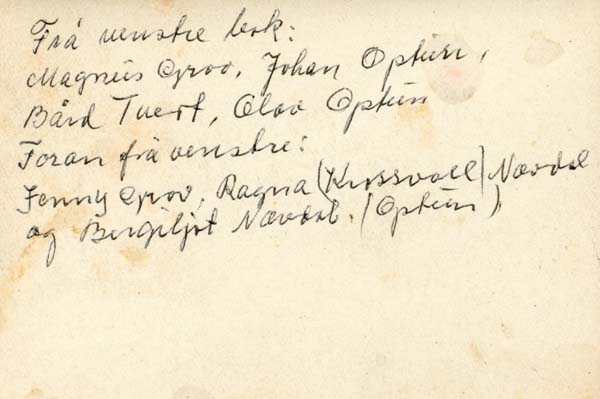 Frå venstre bok:
Magnus Grov, Johan Optun,
Bård Tvert, Olav Optun
Foran frå venstre:
Jenny Grov, Ragna (Krossvoll) Nævdal
og Bergljot Nævdal. (Optun)